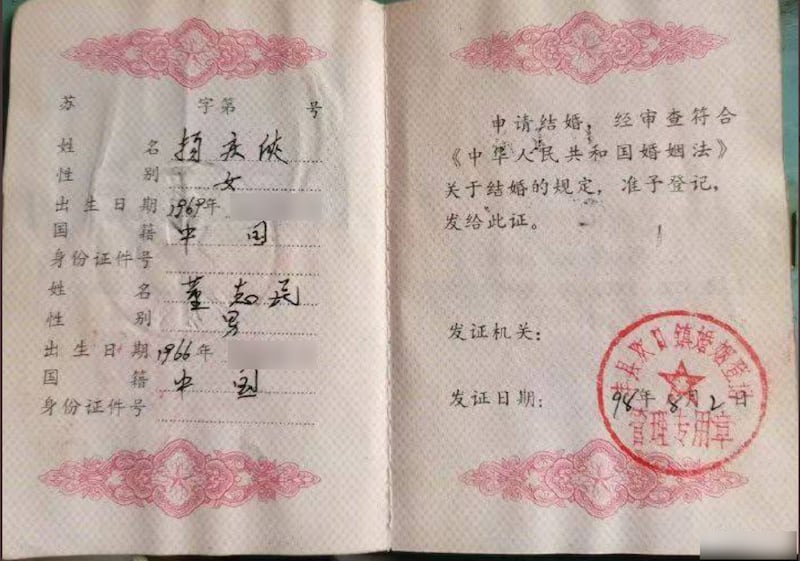 苏 字第 号
姓名 杨庆侠
性别 女
出生日期 1969年
国籍 中国
身份证件号
姓名 董志民
性别 男
出生日期 1966年
国籍 中国
身份证件号
申请结婚，经审查符合
《中华人民共和国婚姻法》
关于结婚的规定，准予登记，
发给此证。
发证机关：
发证日期： 98年8月2日
丰县欢口镇婚姻登记
管理专用章